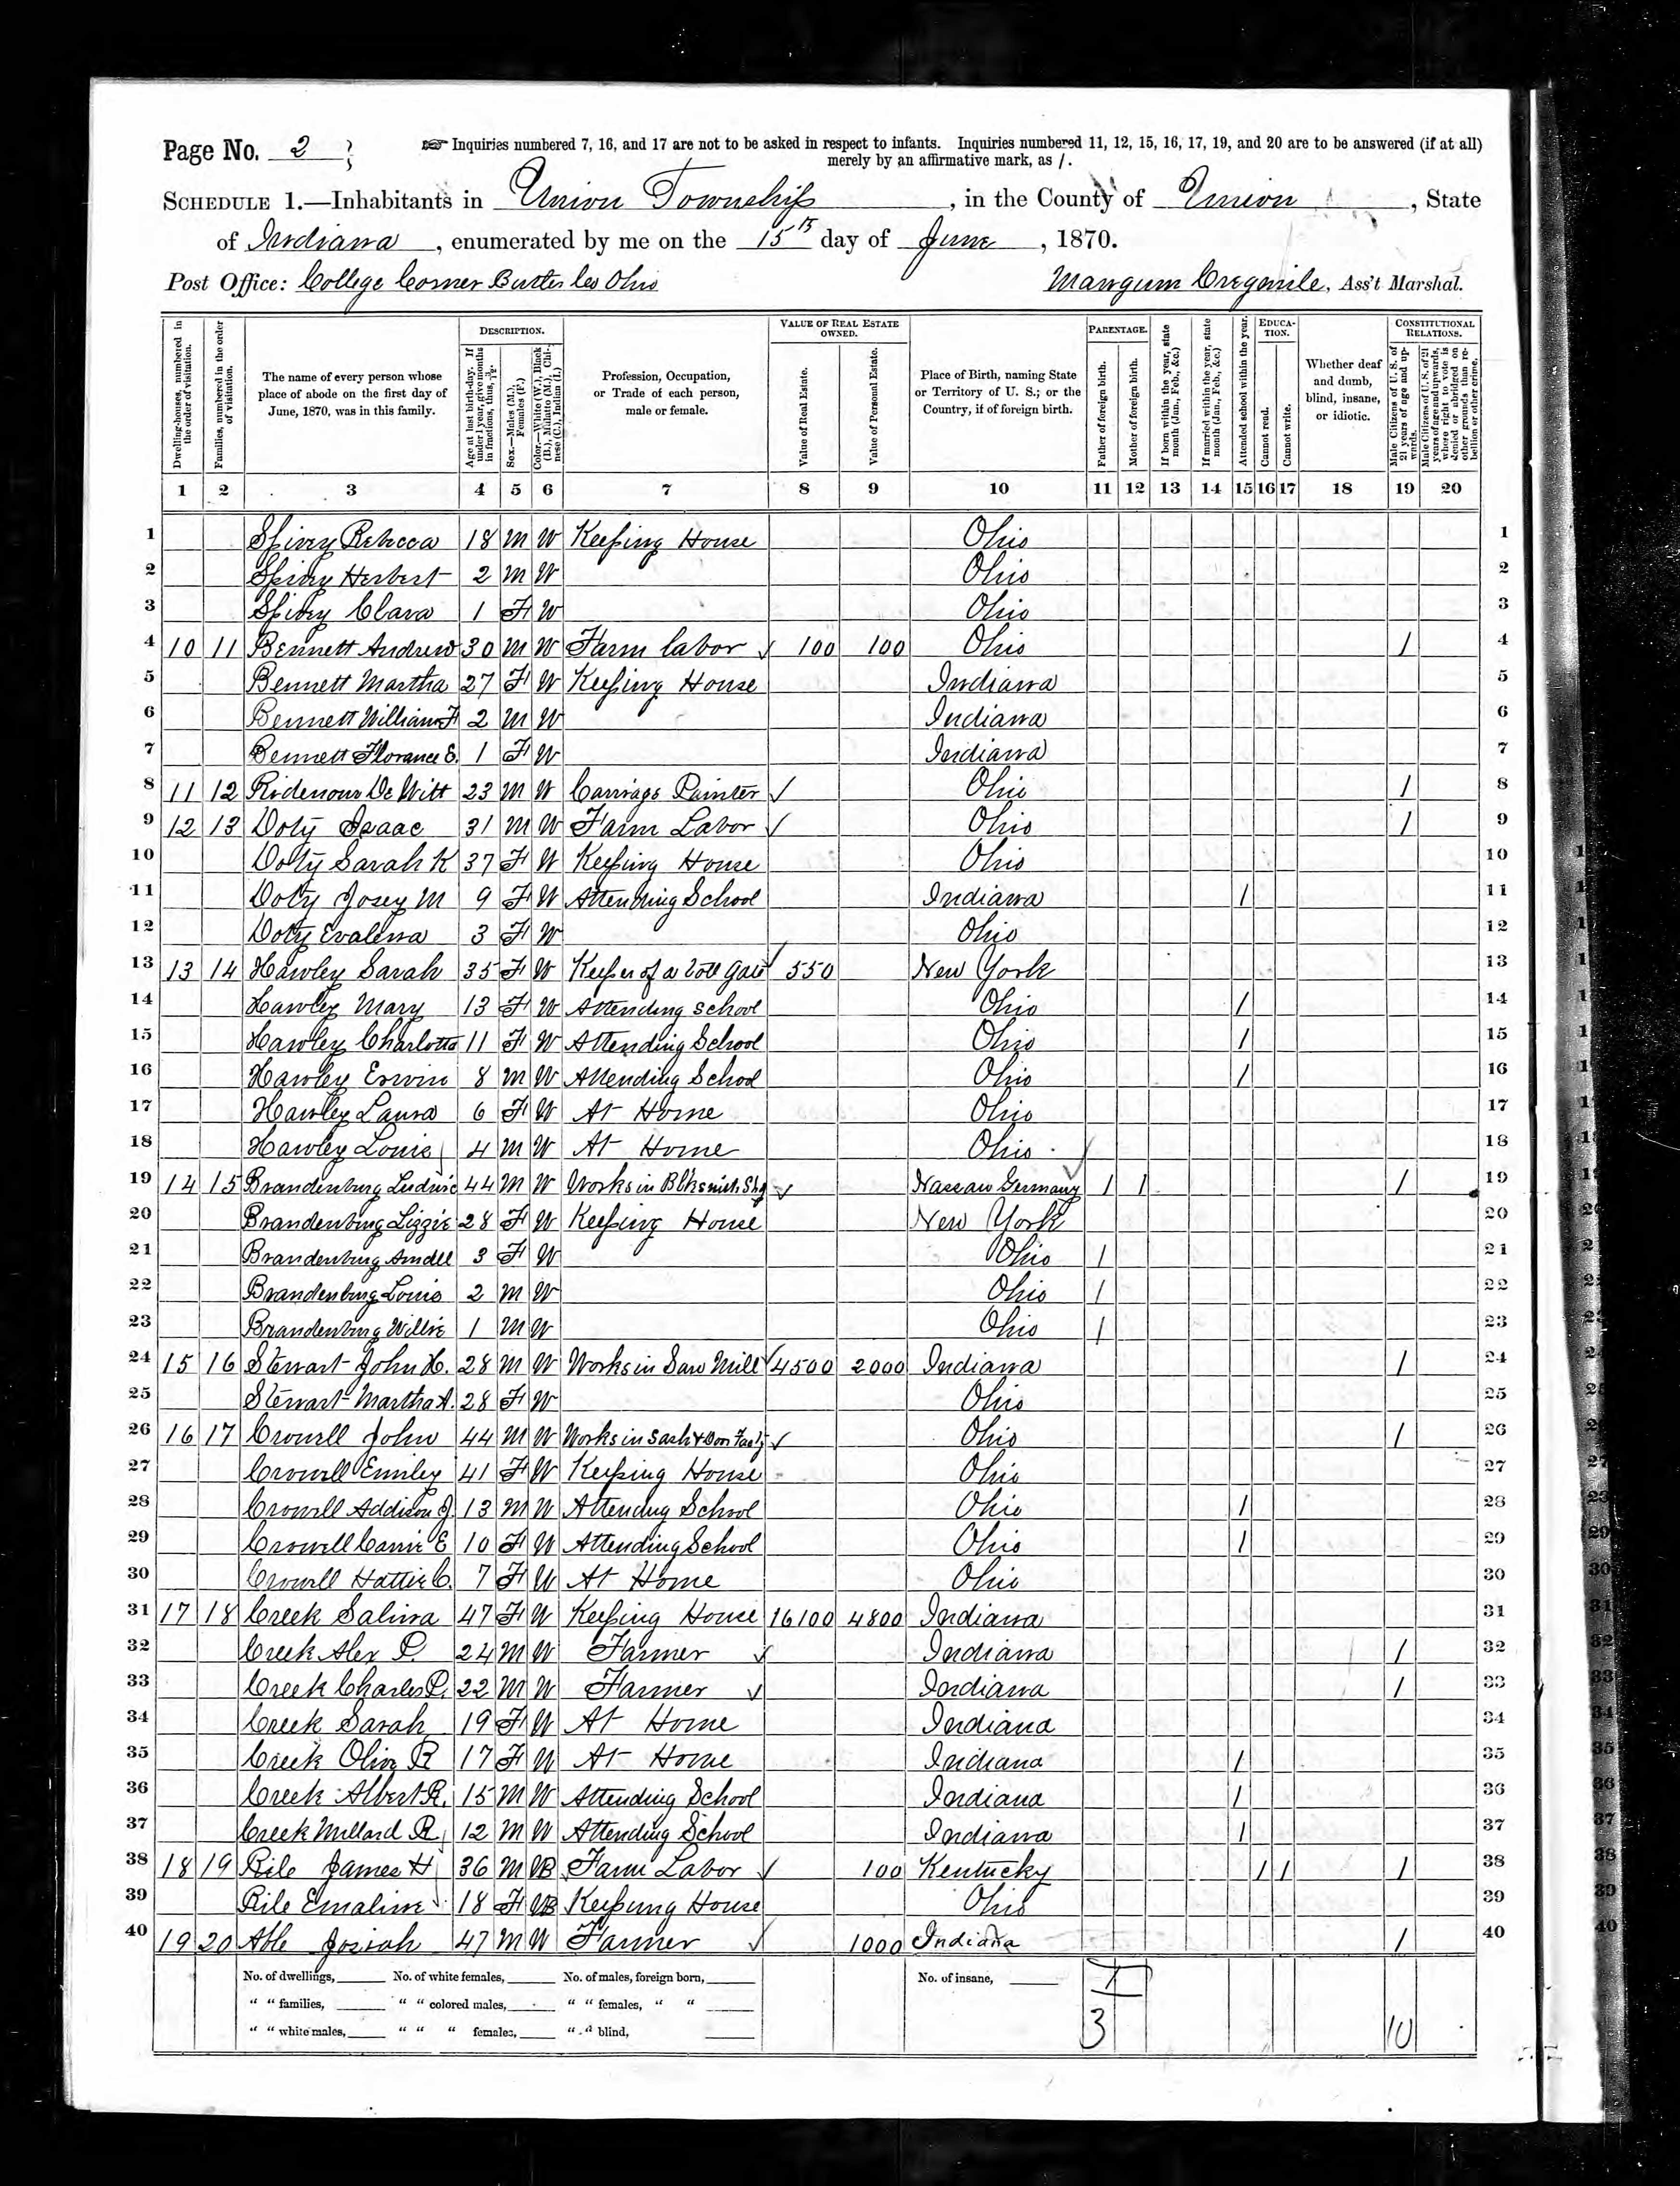 Page No. 2
Inquiries numbered 7, 16, and 17 are not to be asked in respect to infants. Inquiries numbered 11, 12, 15, 16, 17, 19, and 20 are to be answered (if at all)
merely by an affirmative mark, as /.
SCHEDULE 1.—Inhabitants in Union Township, in the County of Union, State
of Indiana, enumerated by me on the 15th day of June, 1870.
Post Office: College Corner Butler Co Ohio
Ass't Marshal.
Dwelling-houses, numbered in the order of visitation.
Families, numbered in the order of visitation.
The name of every person whose place of abode on the first day of June, 1870, was in this family.
DESCRIPTION.
Age at last birth-day. If under 1 year, give months in fractions, thus, 3/12.
Sex.—Males (M.), Females (F.)
Color.—White (W.), Black (B.), Mulatto (M.), Chinese (C.), Indian (I.)
Profession, Occupation, or Trade of each person, male or female.
VALUE OF REAL ESTATE OWNED.
Value of Real Estate.
Value of Personal Estate.
Place of Birth, naming State or Territory of U. S.; or the Country, if of foreign birth.
PARENTAGE.
Father of foreign birth.
Mother of foreign birth.
If born within the year, state month (Jan., Feb., &c.)
If married within the year, state month (Jan., Feb., &c.)
Attended school within the year.
EDUCATION.
Cannot read.
Cannot write.
Whether deaf and dumb, blind, insane, or idiotic.
CONSTITUTIONAL RELATIONS.
Male Citizens of U. S. of 21 years of age and upwards.
Male Citizens of U. S. of 21 years of age and upwards, where right to vote is denied or abridged on other grounds than rebellion or other crime.
1 2 3 4 5 6 7 8 9 10 11 12 13 14 15 16 17 18 19 20
1 Spivey Rebecca 18 M W Keeping House Ohio 1
2 Spivey Herbert 2 M W Ohio 2
3 Spivey Clara 1 F W Ohio 3
4 10 11 Bennett Andrew 30 M W Farm labor 100 100 Ohio / 4
5 Bennett Martha 27 F W Keeping House Indiana 5
6 Bennett William F 2 M W Indiana 6
7 Bennett Florance E. 1 F W Indiana 7
8 11 12 Ridenour De Witt 23 M W Carriage Painter Ohio / 8
9 12 13 Doty Isaac 31 M W Farm Labor Ohio / 9
10 Doty Sarah K 37 F W Keeping House Ohio 10
11 Doty Josey M 9 F W Attending School Indiana / 11
12 Doty Evalena 3 F W Ohio 12
13 13 14 Hawley Sarah 35 F W Keeper of a Toll Gate 550 New York 13
14 Hawley Mary 13 F W Attending school Ohio / 14
15 Hawley Charlotte 11 F W Attending School Ohio / 15
16 Hawley Erwin 8 M W Attending School Ohio / 16
17 Hawley Laura 6 F W At Home Ohio 17
18 Hawley Louis 4 M W At Home Ohio 18
19 14 15 Brandenburg Ludwic 44 M W Works in Blksmith Shop Nassau Germany / / / 19
20 Brandenburg Lizzie 28 F W Keeping House New York 20
21 Brandenburg 3 F W Ohio / 21
22 Brandenburg Louis 2 M W Ohio / 22
23 Brandenburg Willie 1 M W Ohio / 23
24 15 16 Stewart John H. 28 M W Works in Saw Mill 4500 2000 Indiana / 24
25 Stewart Martha A. 28 F W Ohio 25
26 16 17 Crowell John 44 M W Works in Sash & Door Facty Ohio / 26
27 Crowell Emiley 41 F W Keeping House Ohio 27
28 Crowell Addison J. 13 M W Attending School Ohio / 28
29 Crowell Carrie E 10 F W Attending School Ohio / 29
30 Crowell Hattie C. 7 F W At Home Ohio 30
31 17 18 Creek Salina 47 F W Keeping House 16100 4800 Indiana 31
32 Creek Alex P. 24 M W Farmer Indiana / 32
33 Creek Charles P. 22 M W Farmer Indiana / 33
34 Creek Sarah 19 F W At Home Indiana 34
35 Creek Olive R 17 F W At Home Indiana / 35
36 Creek Albert R. 15 M W Attending School Indiana / 36
37 Creek Millard R 12 M W Attending School Indiana / 37
38 18 19 Rile James H 36 M B Farm Labor 100 Kentucky / / / 38
39 Rile Emaline 18 F B Keeping House Ohio 39
40 19 20 Able Josiah 47 M W Farmer 1000 Indiana / 40
No. of dwellings, No. of white females, No. of males, foreign born, No. of insane,
" " families, " " colored males, " " females, " "
" " white males, " " " females, " " blind, 3 10